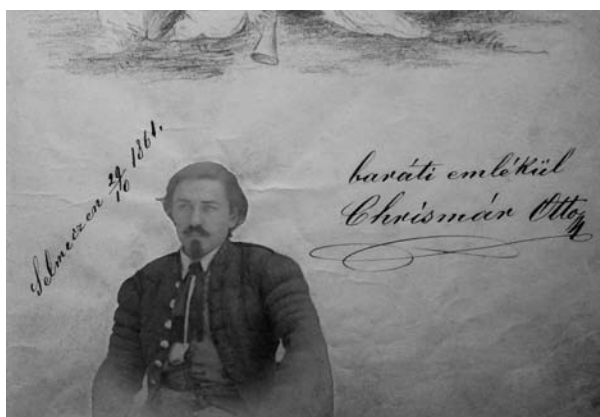 Selmeczen 29/10 1861.
baráti emlékül
Chrismár Otto